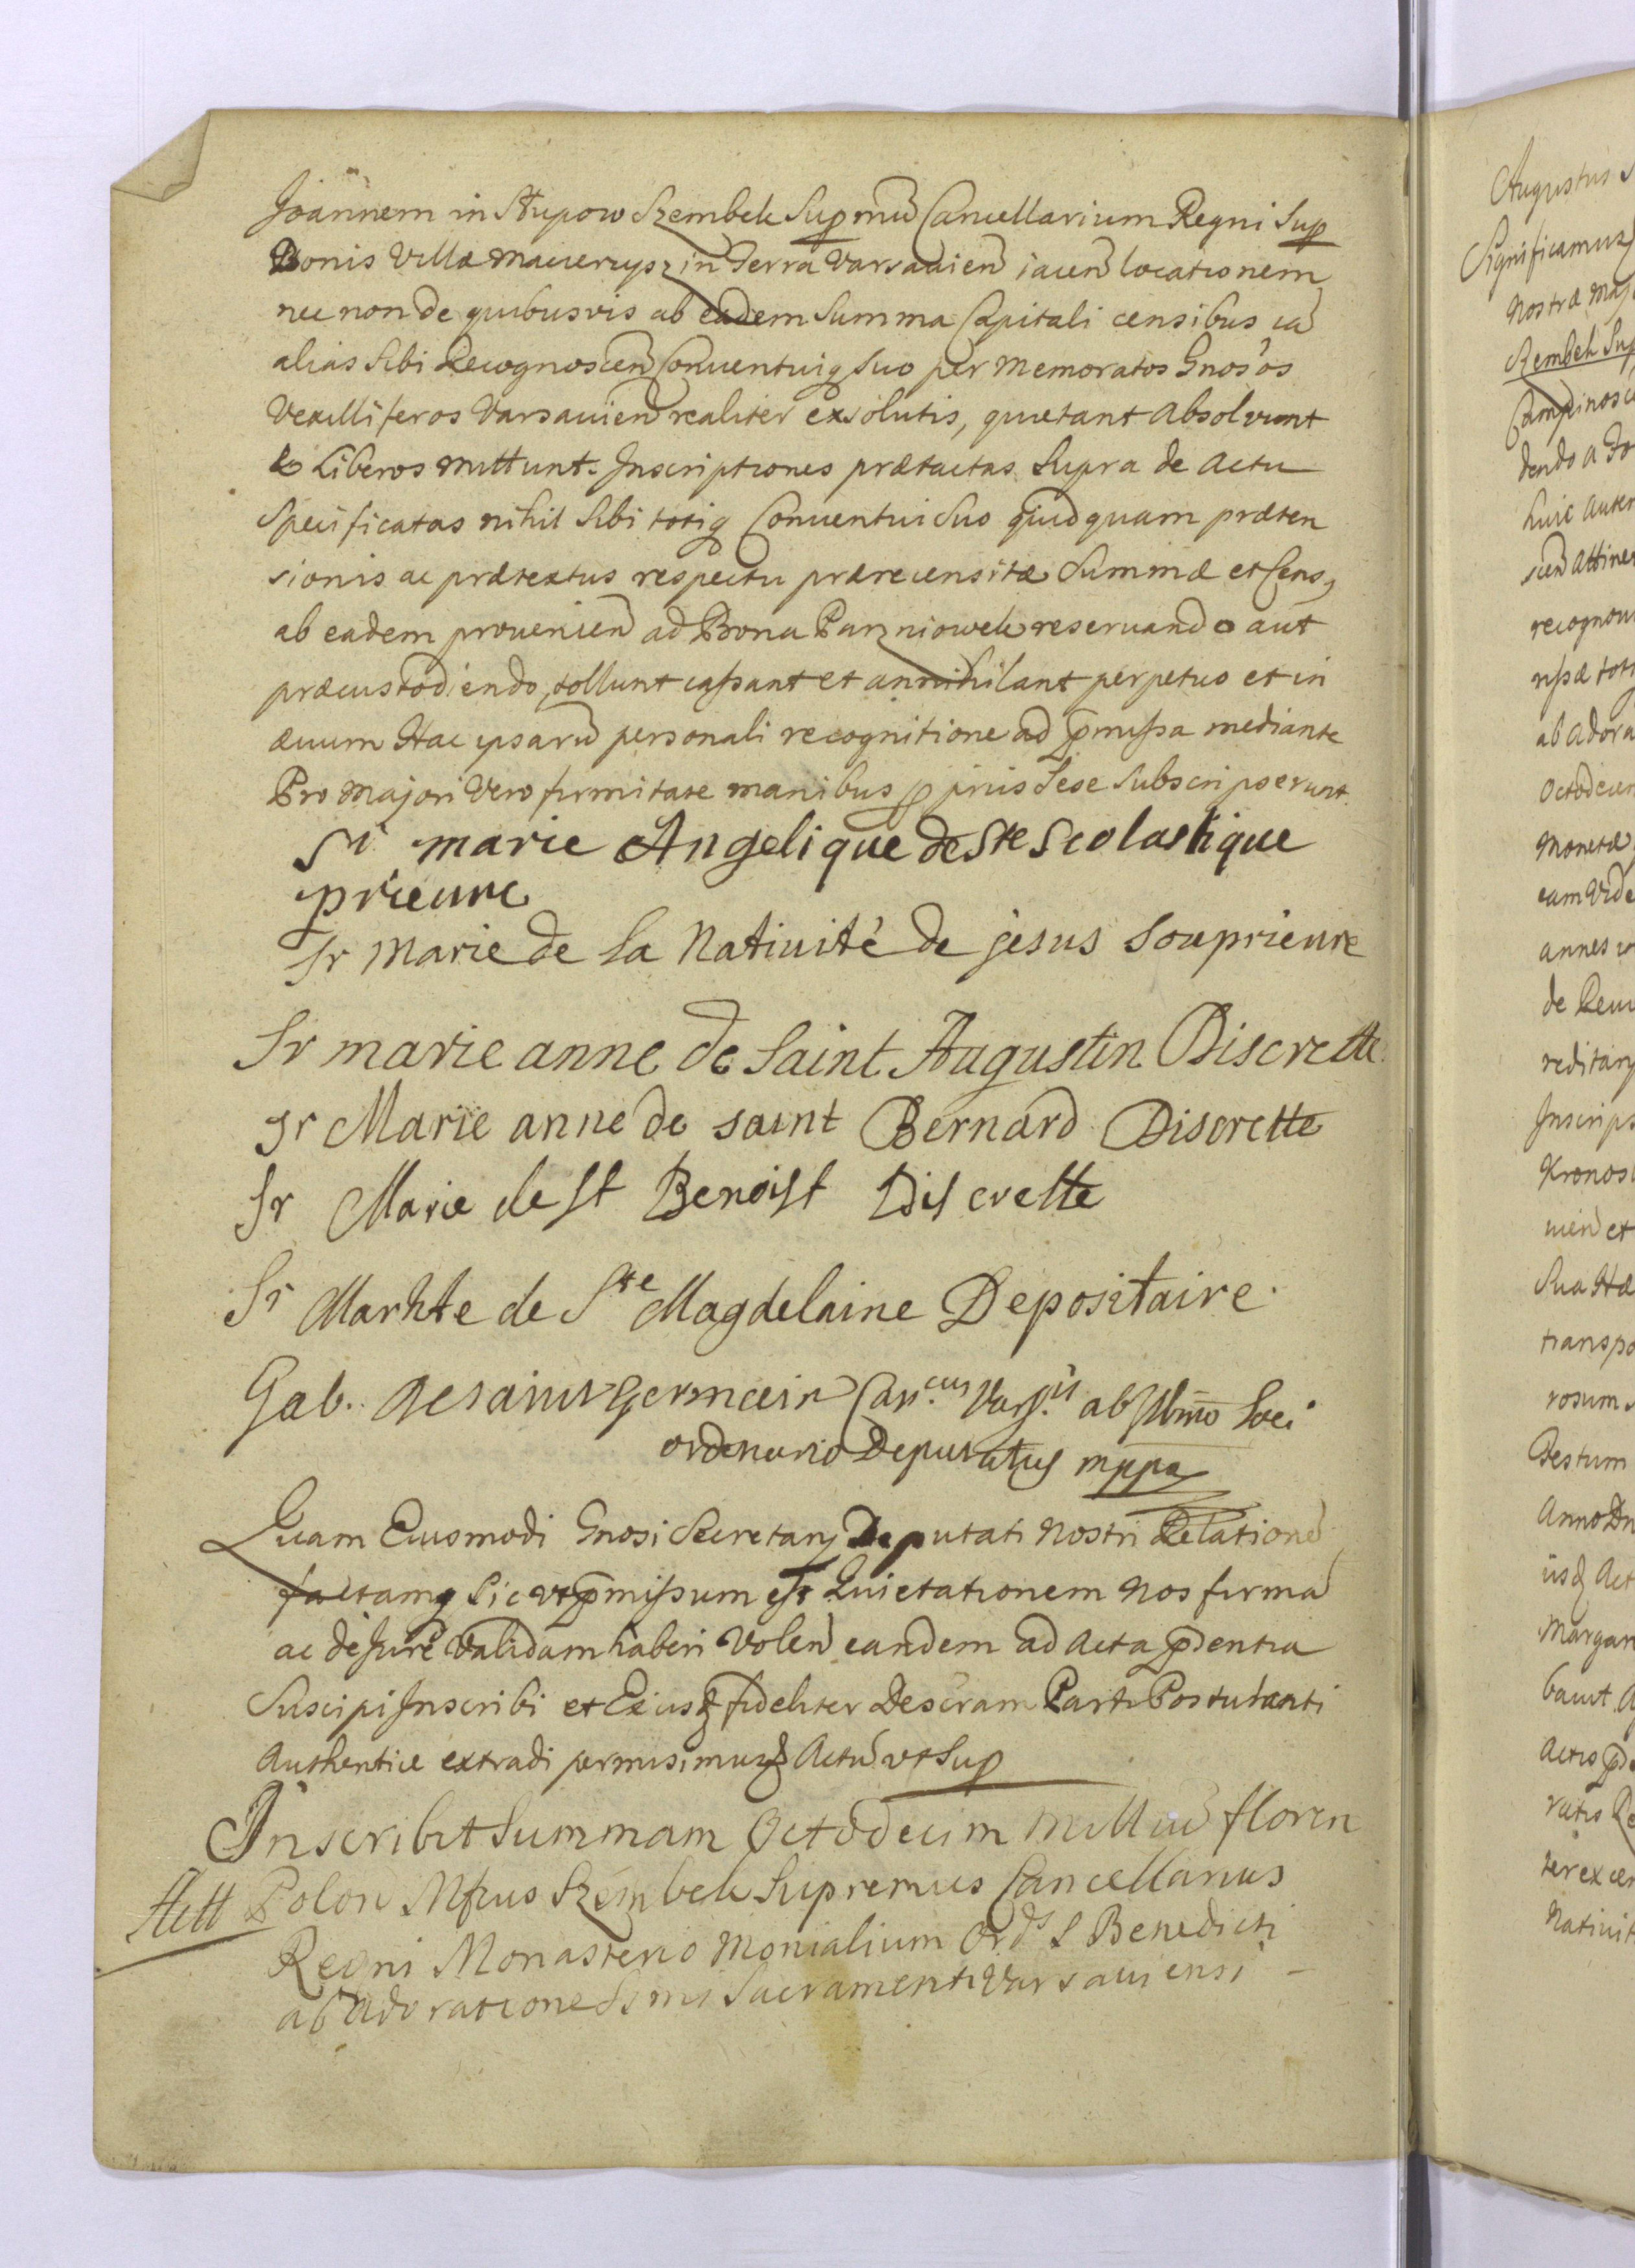 Joannem in Słupow Szembek Supmu Cancellarium Regni Sup
Bonis Villæ Macierzysz in Terra Varsavien iacen locationem
nec non de quibusvis ab eadem Summa Capitali censibus ia
alias Sibi Recognoscen Conventuiq Suo per Memoratos Gnosos
Vexilliferos Varsavien realiter exsolutis, quietant Absolvunt
& Liberos mittunt. Inscriptiones prætactas Supra de Actu
Specificatas nihil Sibi totiq Conventui Suo quidquam præten
sionis ac prætextus respectu prærecensitæ Summæ et Cens,
ab eadem provenien ad Bona Parzniowek reservando aut
præcustodiendo, tollunt cassant et annihilant perpetuo et in
ævum Hac ipsaru personali recognitione ad pmissa mediante
Pro Majori Vero firmitate manibus pprijs Sese Subscripserunt.
Sr marie Angelique de Ste Scolastique
prieure
Sr Marie de la Nativité de jesus Souprieure
Sr marie anne de Saint Augustin Discrette
Sr Marie anne de saint Bernard Discrette
Sr Marie de St Benoist Discrette
Sr Marhte de Ste Magdelaine Depositaire.
Gab. de saint Germain Can.cus Vars.is ab Illmo Loci
ordenario Deputatus mppa
Quam Eiusmodi Gnosi Secretarij Deputati Nostri Relatione
factamq Sic vt pmissum est Quietationem Nos firma
ac de Jure Validam haberi Volen eandem ad Acta pdentia
Suscipi Inscribi et Ex iisq fideliter Descram Parti Postulanti
Authentice extradi permisimus Actu vt Sup
Inscribit Summam Octodecim Milliu floren
Actt Polon Mfcus Szembek Supremus Cancellarius
Regni Monasterio Monialium Ords S Benedicti
ab Adoratione Ssmi Sacramenti Varsaviensi -
Augustus
Significamus
Nostræ Maj
Szembek Sup
Campinosc
dendo a Fo
huic auten
scen attinen
recognov
ab adora
Octodecim
Monetæ
eam Vide
annes
reditarij
Inscrips
Kronos
vien et
Sua Hæ
transpo
rosum
Festum
Anno Dn
iisq Act
Margar
bavit
Actis
Nativit